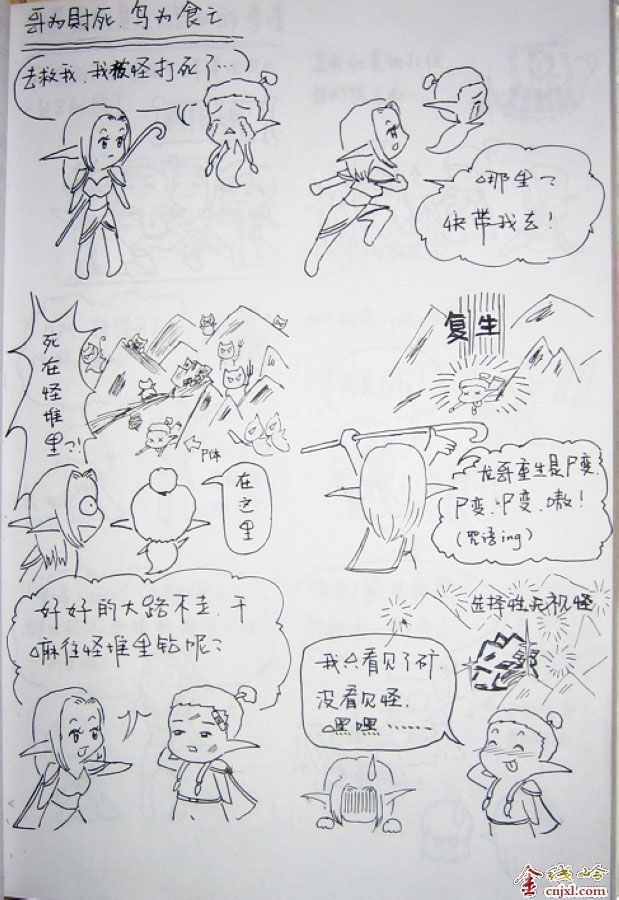 哥为財死.鸟为食亡
去救我.我被怪打死了…
哪里?
快带我去!
死
在
怪
堆
里?!
尸体
在
这
里
复生
龙哥重生是尸变.
尸变.尸变.嗷!
(咒语ing)
好好的大路不走.干
嘛往怪堆里钻呢?
选择性无视怪
我只看见了矿.
没看见怪.
嘿嘿……
金线岭
cnjxl.com